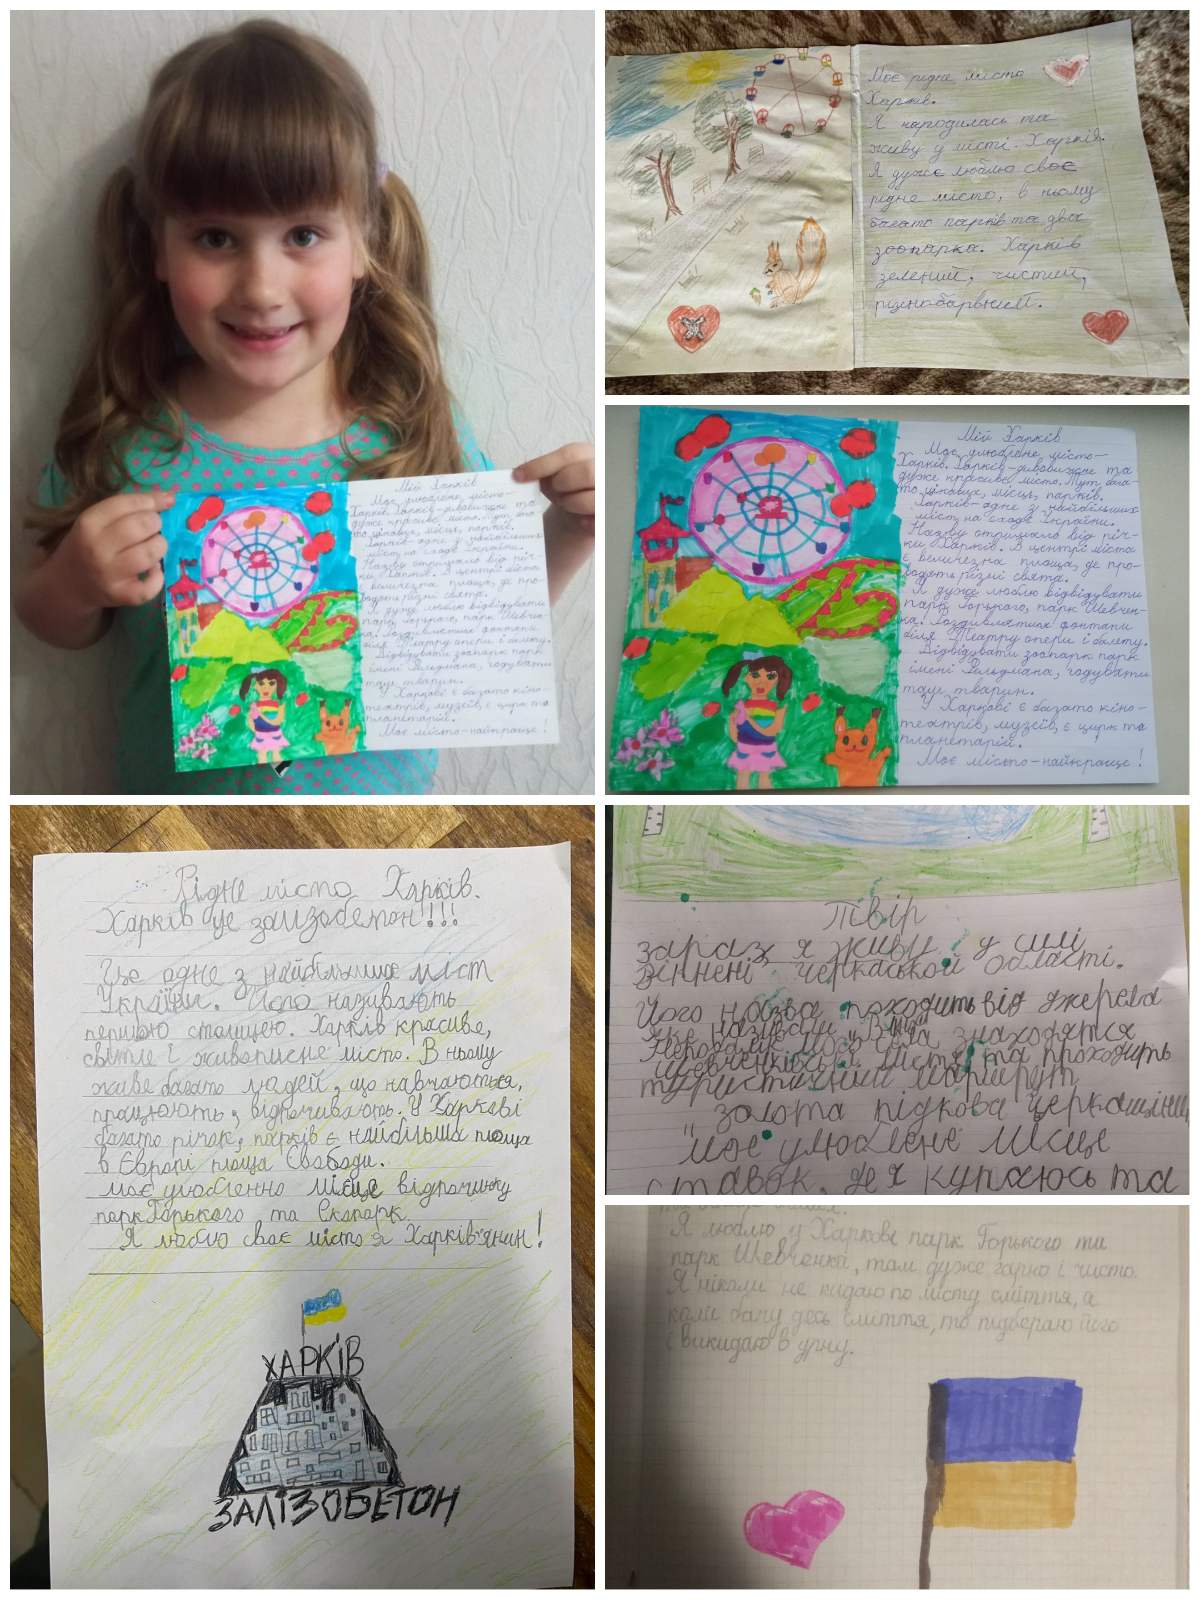 Мій Харків
Моє улюблене місто-
Харків. Харків-дивовижне та
дуже красиве місто. Тут бага-
то цікавих місць, парків.
Харків-одне з найбільших
міст на сході України.
Назву отримало від річ-
ки Харків. В центрі міста
є величезна площа, де про-
водять різні свята.
Я дуже люблю відвідувати
парк Горького, парк Шевчен-
ка.
біля Театру опери і балету.
Відвідувати зоопарк парк
імені Фельдмана, годувати
тварин.
У Харкові є багато кіно-
театрів, музеїв, є цирк та
планетарій.
Моє місто-найкраще!
Моє рідне місто
Харків.
Я народилась та
живу у місті Харків.
Я дуже люблю своє
рідне місто, в ньому
багато парків та два
зоопарка. Харків
зелений, чистий,
різнобарвний.
Мій Харків
Моє улюблене місто-
Харків. Харків-дивовижне та
дуже красиве місто. Тут бага-
то цікавих місць, парків.
Харків-одне з найбільших
міст на сході України.
Назву отримало від річ-
ки Харків. В центрі міста
є величезна площа, де про-
водять різні свята.
Я дуже люблю відвідувати
парк Горького, парк Шевчен-
ка. фонтани
біля Театру опери і балету.
Відвідувати зоопарк парк
імені Фельдмана, годувати
тварин.
У Харкові є багато кіно-
театрів, музеїв, є цирк та
планетарій.
Моє місто-найкраще!
Рідне місто Харків.
Харків це залізобетон!!!
Це одне з найбільших міст
України. Його називають
першою столицею. Харків красиве,
світле і живописне місто. В ньому
живе багато людей, що навчаються,
працюють, відпочивають. У Харкові
багато річок, парків є найбільша площа
в Європі площа Свободи.
моє улюбленно місце відпочинку
парк Горького та Екопарк.
Я люблю своє місто я Харків'янин!
ХАРКІВ
ЗАЛІЗОБЕТОН
твір
зараз я живу у силі
Вікнені черкаської області.
Його назва походить від джерела
яке називали Вікно
Неподалік мого села знаходятся
Шевченківські міста та проходить
туристичний маршрут
"золота підкова черкащини
моє улюблене місце
ставок, де я купаюсь та
Я люблю у Харкові парк Горького та
парк Шевченка, там дуже гарно і чисто.
Я ніколи не кидаю по місту сміття, а
коли бачу десь сміття, то підбераю його
і викидаю в урну.